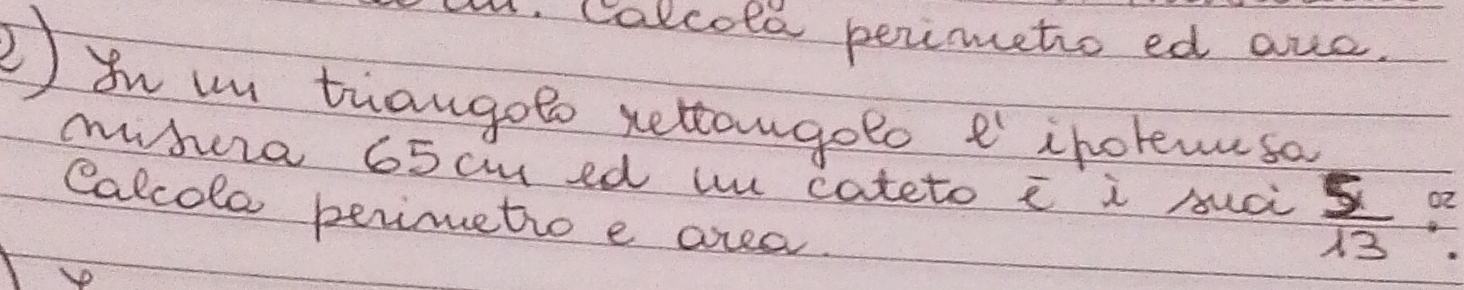 Calcola perimetro ed area.
2) In un triangolo rettangolo l'ipotenusa
misura 65 cm ed un cateto è i suoi 5/13.
Calcola perimetro e area.